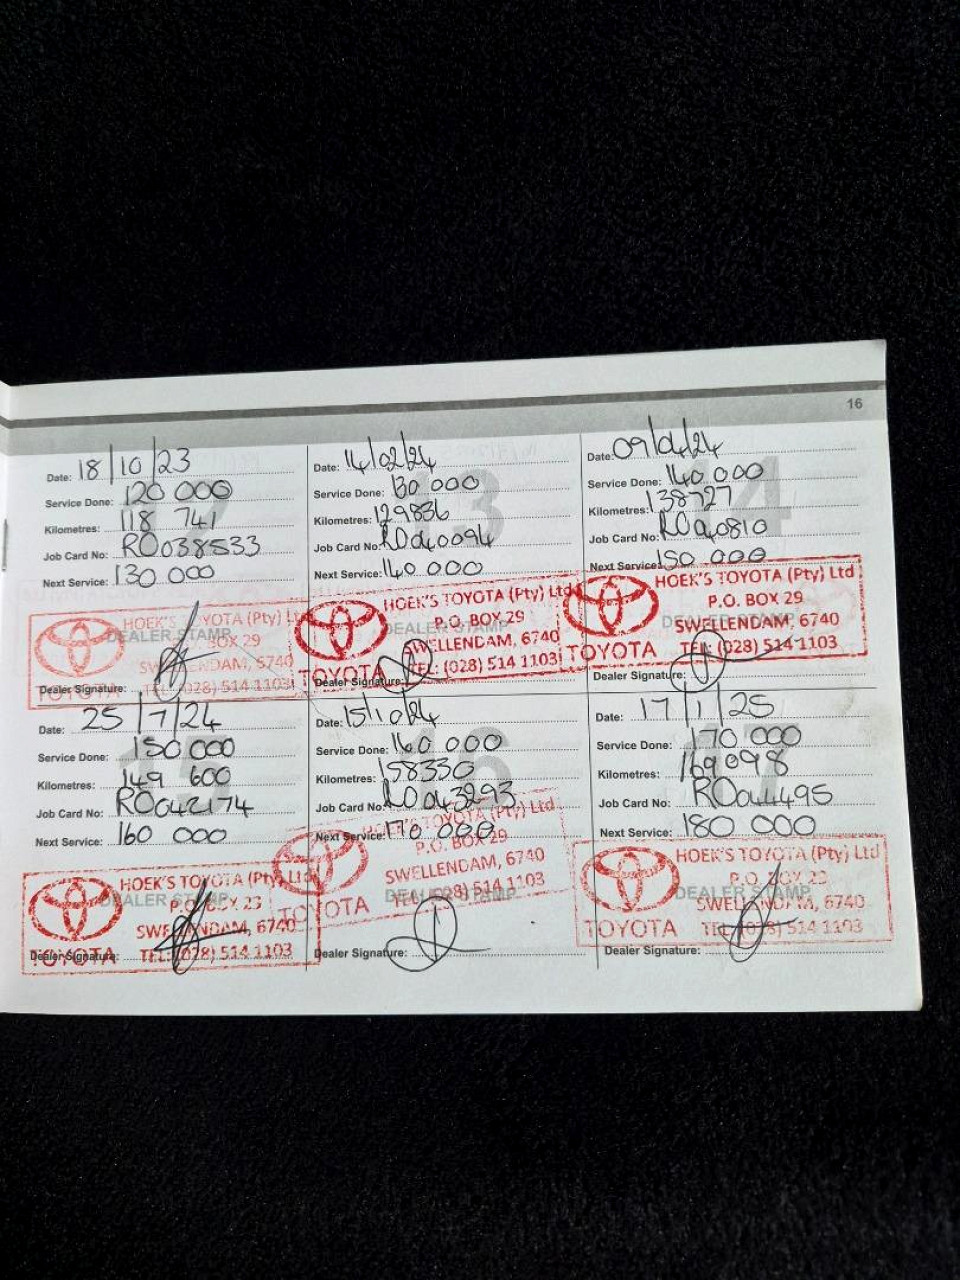 16
Date: 18/10/23
Service Done: 120 000
Kilometres: 118 741
Job Card No: RO038533
Next Service: 130 000
HOEK'S TOYOTA (Pty) Ltd
P.O. BOX 29
DEALER STAMP
SWELLENDAM, 6740
TOYOTA TEL: (028) 514 1103
Dealer Signature:
Date: 14/02/24
Service Done: 130 000
Kilometres: 129836
Job Card No: RO040094
Next Service: 140 000
HOEK'S TOYOTA (Pty) Ltd
P.O. BOX 29
DEALER STAMP
SWELLENDAM, 6740
TOYOTA TEL: (028) 514 1103
Dealer Signature:
Date: 09/04/24
Service Done: 140 000
Kilometres: 138727
Job Card No: RO040810
Next Service: 150 000
HOEK'S TOYOTA (Pty) Ltd
P.O. BOX 29
DEALER STAMP
SWELLENDAM, 6740
TOYOTA TEL: (028) 514 1103
Dealer Signature:
Date: 25/7/24
Service Done: 150 000
Kilometres: 149 600
Job Card No: RO042174
Next Service: 160 000
HOEK'S TOYOTA (Pty) Ltd
DEALER STAMP
P.O. BOX 23
SWELLENDAM, 6740
TOYOTA TEL: (028) 514 1103
Dealer Signature:
Date: 15/10/24
Service Done: 160 000
Kilometres: 158330
Job Card No: RO043293
Next Service: 170 000
HOEK'S TOYOTA (Pty) Ltd
P.O. BOX 29
SWELLENDAM, 6740
DEALER STAMP
TOYOTA TEL: (028) 514 1103
Dealer Signature:
Date: 17/1/25
Service Done: 170 000
Kilometres: 169098
Job Card No: RO044495
Next Service: 180 000
HOEK'S TOYOTA (Pty) Ltd
P.O. BOX 23
DEALER STAMP
SWELLENDAM, 6740
TOYOTA TEL: (028) 514 1103
Dealer Signature: